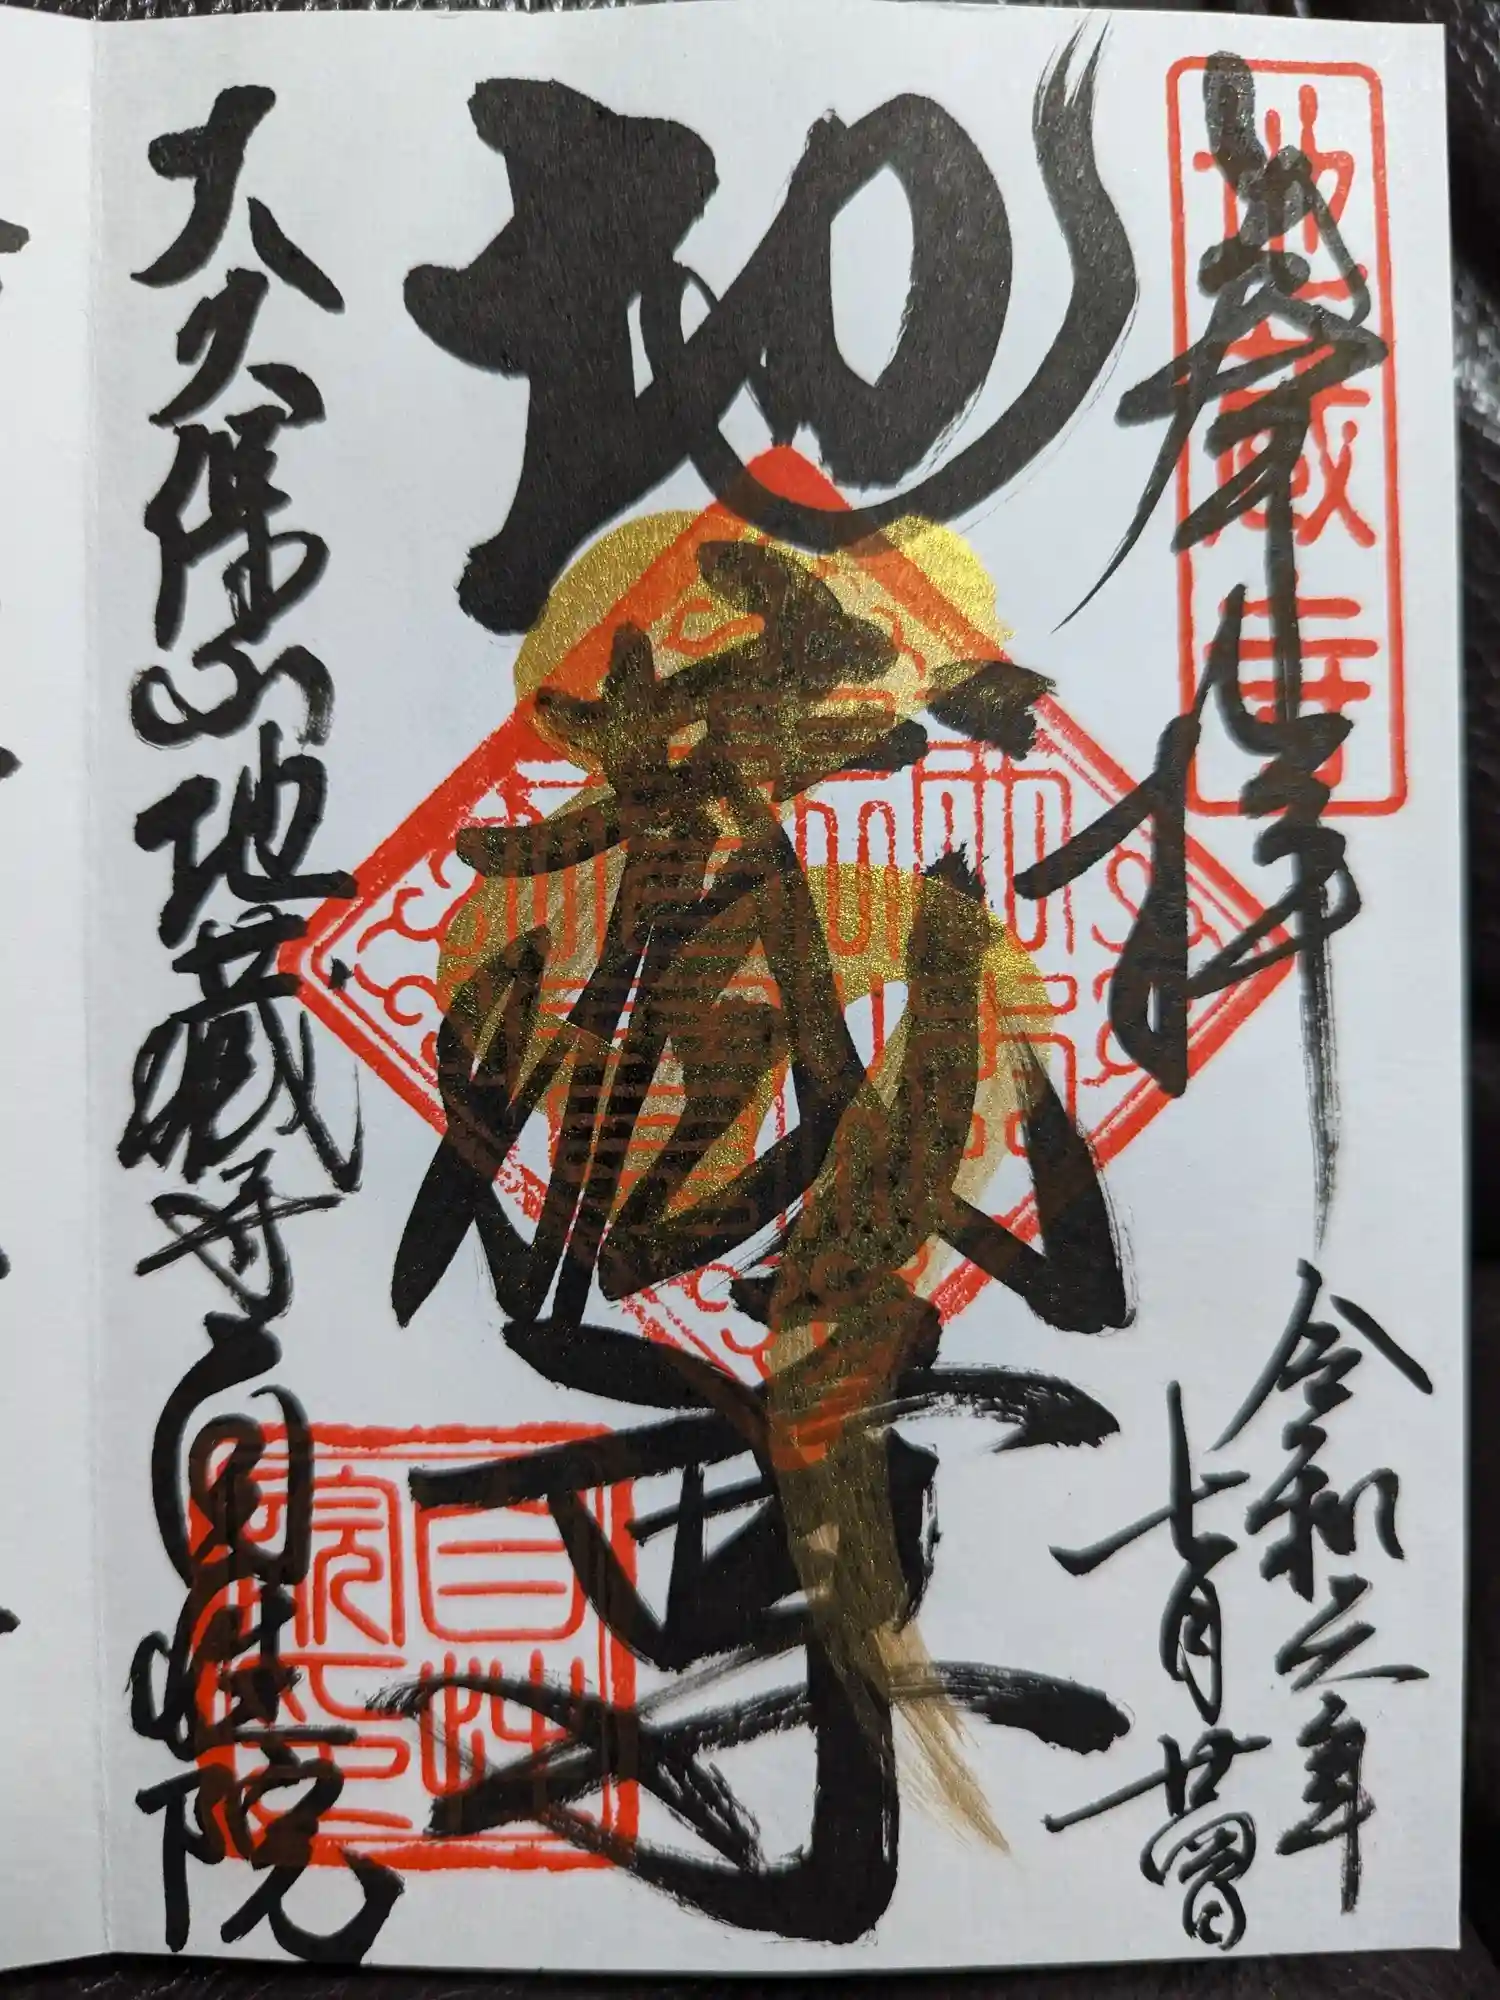 奉拝
地蔵寺
令和元年
七月廿四日
地蔵尊
大久保山地蔵寺自性院
自性院印